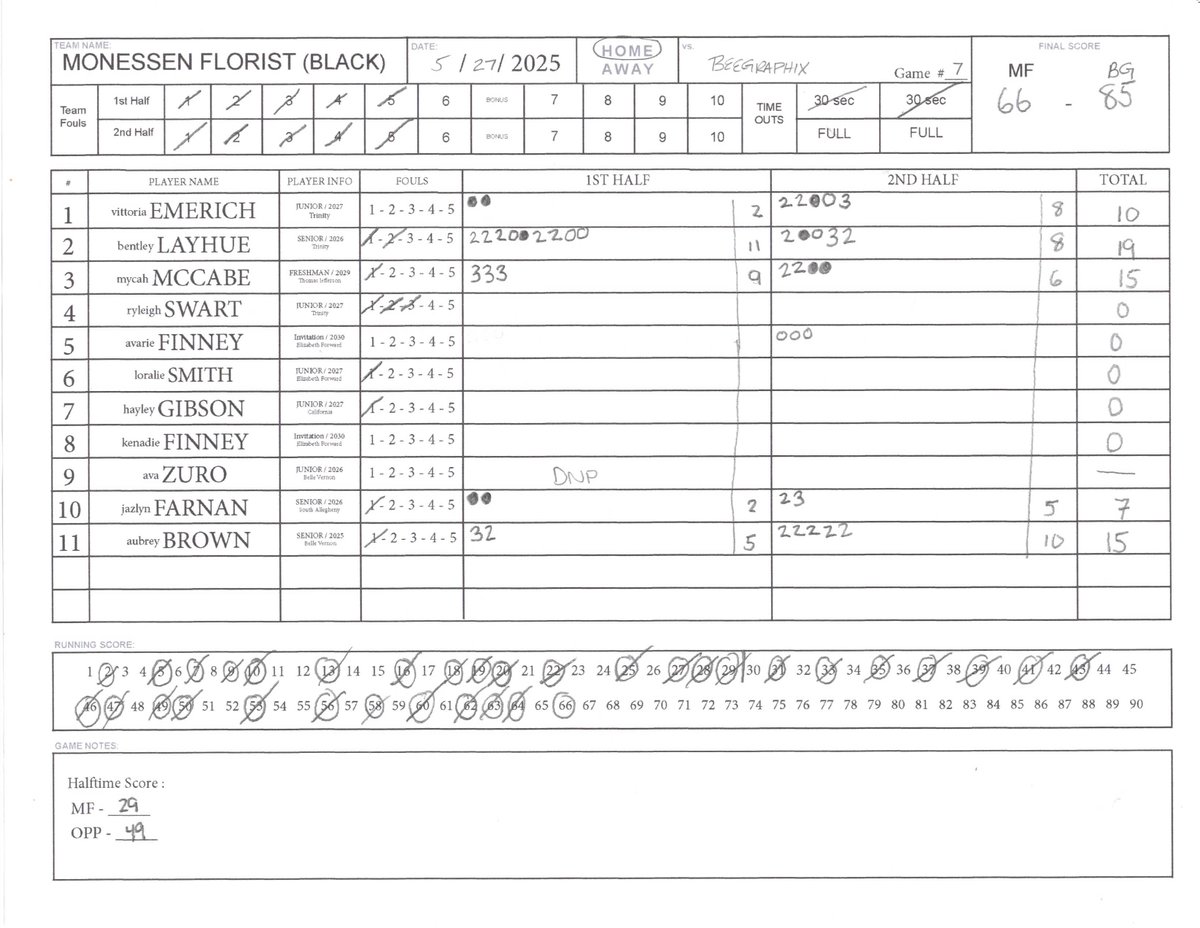 TEAM NAME: DATE: HOME vs. FINAL SCORE
MONESSEN FLORIST (BLACK) 5 / 27 / 2025 AWAY BEEGRAPHIX Game # 7 MF BG
66 - 85
Team Fouls 1st Half 1 2 3 4 5 6 BONUS 7 8 9 10 TIME OUTS 30 sec 30 sec
2nd Half 1 2 3 4 5 6 BONUS 7 8 9 10 FULL FULL
# PLAYER NAME PLAYER INFO FOULS 1ST HALF 2ND HALF TOTAL
1 vittoria EMERICH JUNIOR / 2027 Trinity 1 - 2 - 3 - 4 - 5 ●● 2 22●03 8 10
2 bentley LAYHUE SENIOR / 2026 Trinity 1 - 2 - 3 - 4 - 5 2220●2200 11 2●032 8 19
3 mycah MCCABE FRESHMAN / 2029 Thomas Jefferson 1 - 2 - 3 - 4 - 5 333 9 22●● 6 15
4 ryleigh SWART JUNIOR / 2027 Trinity 1 - 2 - 3 - 4 - 5 0
5 avarie FINNEY Invitation / 2030 Elizabeth Forward 1 - 2 - 3 - 4 - 5 000 0
6 loralie SMITH JUNIOR / 2027 Elizabeth Forward 1 - 2 - 3 - 4 - 5 0
7 hayley GIBSON JUNIOR / 2027 California 1 - 2 - 3 - 4 - 5 0
8 kenadie FINNEY Invitation / 2030 Elizabeth Forward 1 - 2 - 3 - 4 - 5 0
9 ava ZURO JUNIOR / 2026 Belle Vernon 1 - 2 - 3 - 4 - 5 DNP —
10 jazlyn FARNAN SENIOR / 2026 South Allegheny 1 - 2 - 3 - 4 - 5 ●● 2 23 5 7
11 aubrey BROWN SENIOR / 2025 Belle Vernon 1 - 2 - 3 - 4 - 5 32 5 22222 10 15
RUNNING SCORE:
1 2 3 4 5 6 7 8 9 10 11 12 13 14 15 16 17 18 19 20 21 22 23 24 25 26 27 28 29 30 31 32 33 34 35 36 37 38 39 40 41 42 43 44 45
46 47 48 49 50 51 52 53 54 55 56 57 58 59 60 61 62 63 64 65 66 67 68 69 70 71 72 73 74 75 76 77 78 79 80 81 82 83 84 85 86 87 88 89 90
GAME NOTES:
Halftime Score :
MF - 29
OPP - 49